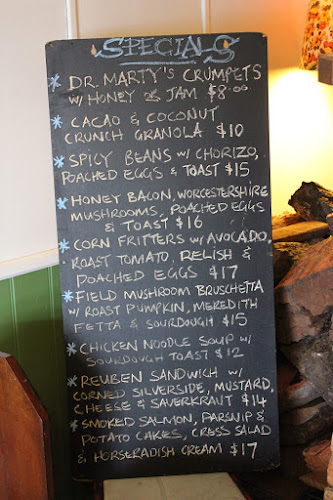 SPECIALS
* DR. MARTY'S CRUMPETS
W/ HONEY OR JAM $8.00
* CACAO & COCONUT
CRUNCH GRANOLA $10
* SPICY BEANS W/ CHORIZO,
POACHED EGGS & TOAST $15
* HONEY BACON, WORCESTERSHIRE
MUSHROOMS, POACHED EGGS
& TOAST $16
* CORN FRITTERS W/ AVOCADO,
ROAST TOMATO, RELISH &
POACHED EGGS $17
* FIELD MUSHROOM BRUSCHETTA
W/ ROAST PUMPKIN, MEREDITH
FETTA & SOURDOUGH $15
* CHICKEN NOODLE SOUP W/
SOURDOUGH TOAST $12
* REUBEN SANDWICH W/
CORNED SILVERSIDE, MUSTARD,
CHEESE & SAUERKRAUT $14
* SMOKED SALMON, PARSNIP &
POTATO CAKES, CRESS SALAD
& HORSERADISH CREAM $17